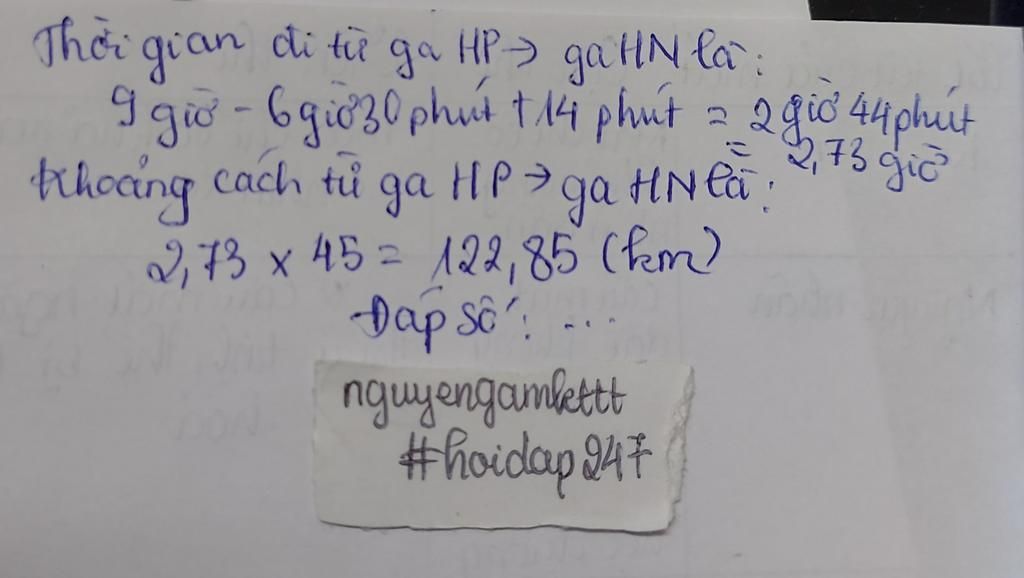 Thời gian đi từ ga HP → ga HN là:
9 giờ - 6 giờ 30 phút + 14 phút = 2 giờ 44 phút
= 2,73 giờ
Khoảng cách từ ga HP → ga HN là:
2,73 x 45 = 122,85 (km)
Đáp số: ...
nguyengamlettt
#hoidap247